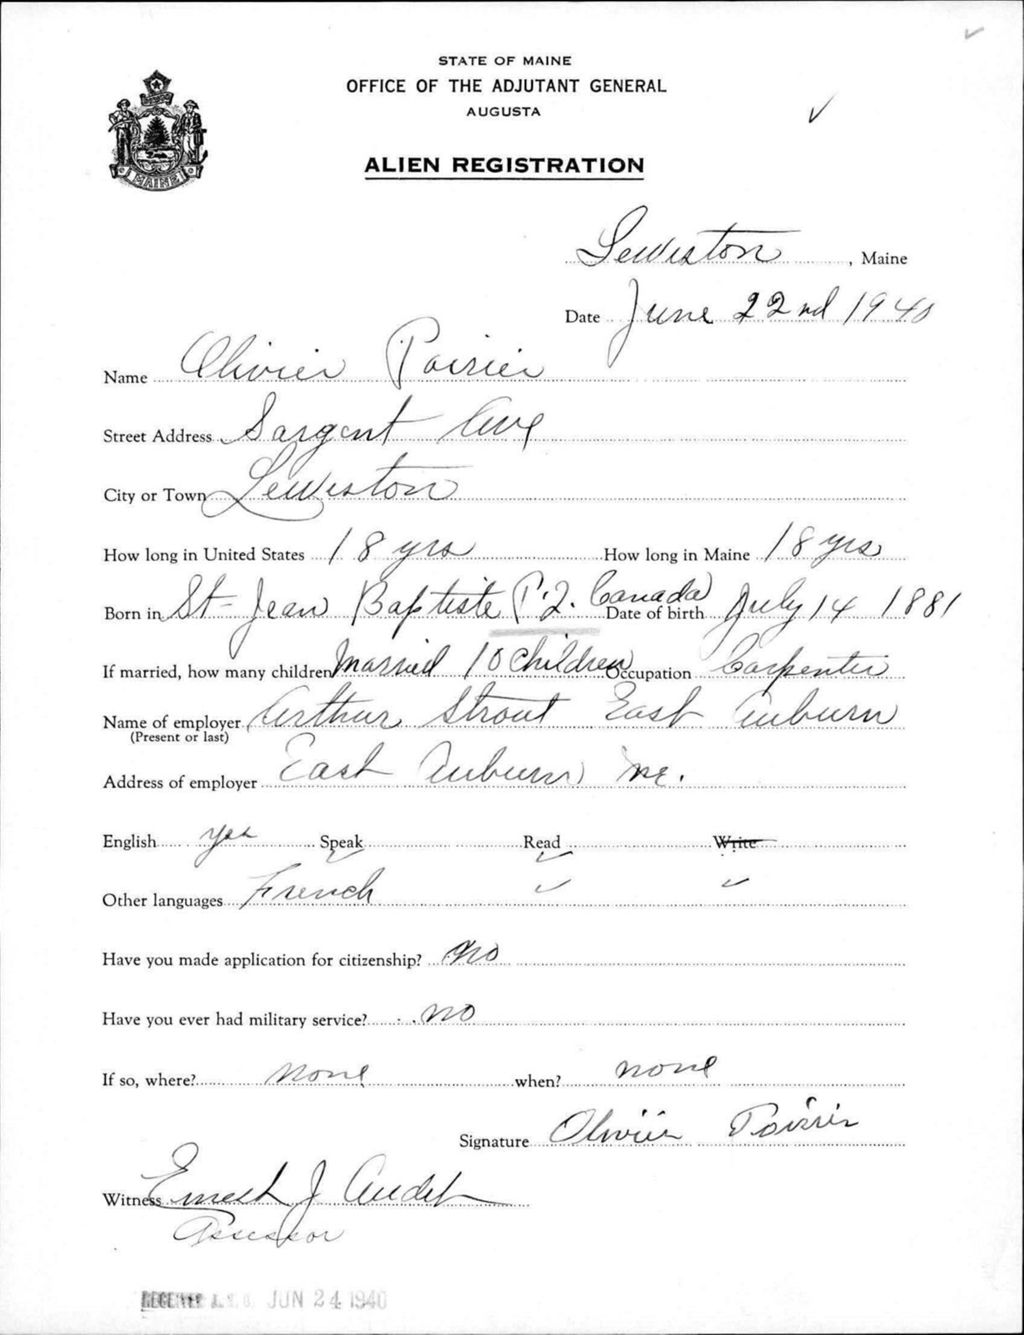 STATE OF MAINE
OFFICE OF THE ADJUTANT GENERAL
AUGUSTA
MAINE
ALIEN REGISTRATION
Lewiston, Maine
Date June 22nd 1940
Name Olivier Poirier
Street Address Sargent Ave
City or Town Lewiston
How long in United States 18 yrs How long in Maine 18 yrs
Born in St-Jean Baptiste P.Q. Canada Date of birth July 14 1881
If married, how many children Married 10 Children Occupation Carpenter
Name of employer Arthur Strout East Auburn
(Present or last)
Address of employer East Auburn Me.
English yes Speak Read Write
Other languages French
Have you made application for citizenship? No
Have you ever had military service? no
If so, where? none when? none
Signature Olivier Poirier
Witness Ernest J Audet
Assessor
RECEIVED A.G.O. JUN 24 1940